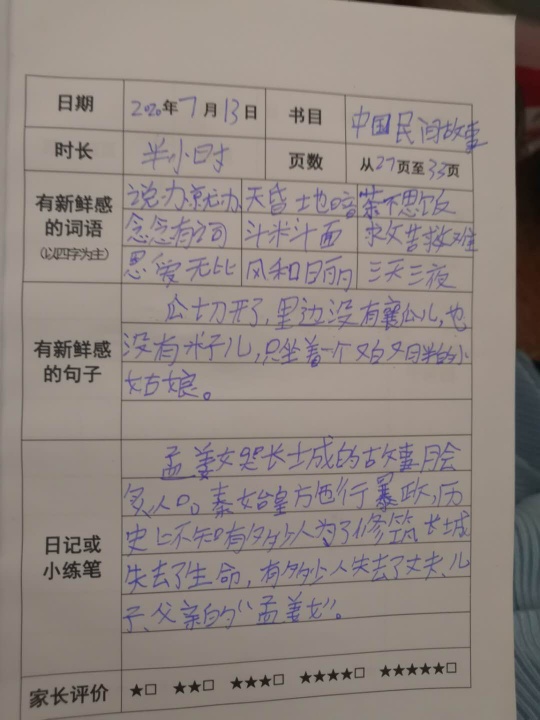 日期 2020年7月13日 书目 中国民间故事
时长 半小时 页数 从27页至33页
有新鲜感的词语 (以四字为主)
说办就办 天昏地暗 茶不思饭
念念有词 斗米斗面 求苦救难
恩爱无比 风和日丽 三天三夜
有新鲜感的句子
瓜切开了,里边没有瓤儿,也
没有籽儿,只坐着一个又白又胖的小
姑娘。
日记或小练笔
孟姜女哭长城的故事脍
炙人口。秦始皇方也行暴政,历
史上不知有多少人为了修筑长城
失去了生命,有多少人失去了丈夫、儿
子、父亲的“孟姜女”。
家长评价 ★□ ★★□ ★★★□ ★★★★□ ★★★★★□